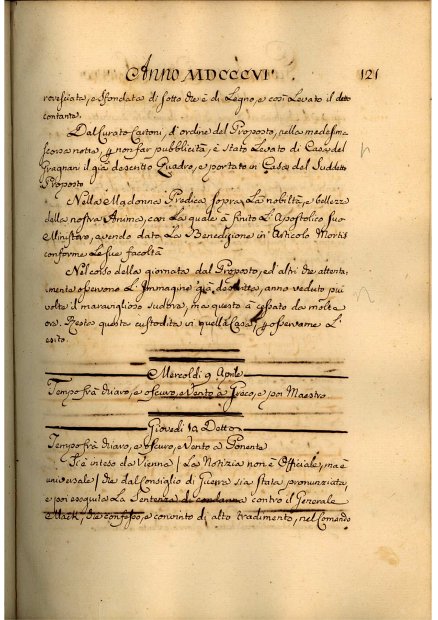 Anno MDCCCVI 121
rovesciata, e sfondata di sotto che è di Legno, e così Levato il detto
contante.
Dal Curato Cartoni, d'ordine del Proposto, nella medesima
scorsa notte, # non far pubblicità, è stato Levato di Casa del
Gragnani il già descritto Quadro, e portato in Casa del Suddetto
Proposto
Nella Madonna Predica sopra La nobiltà, e bellezza
della nostra Anima, con La quale à finito L'Apostolico suo
Ministero, avendo data La Benedizione in Articolo Mortis
conforme Le sue facoltà
Nel corso della giornata dal Proposto, ed altri che attenta-
mente osservono L'Immagine già descritta, anno veduto più
volte il maraviglioso sudore, ma questo à cessato da molte
ore. Resta questa custodita in quella Casa, # osservarne L'
esito.
Mercoldì 9 Aprile
Tempo frà chiaro, e oscuro, e Vento à Greco, e poi Maestro
Giovedì 10 Detto
Tempo frà chiaro, e oscuro, e Vento a Ponente
Si è inteso da Vienna / La Notizia non è Officiale, ma è
universale / che dal Consiglio di Guerra sia stata pronunziata,
e poi eseguita La Sentenza di condanna contro il Generale
Mack, che confesso, e convinto di alto tradimento, nel Comando